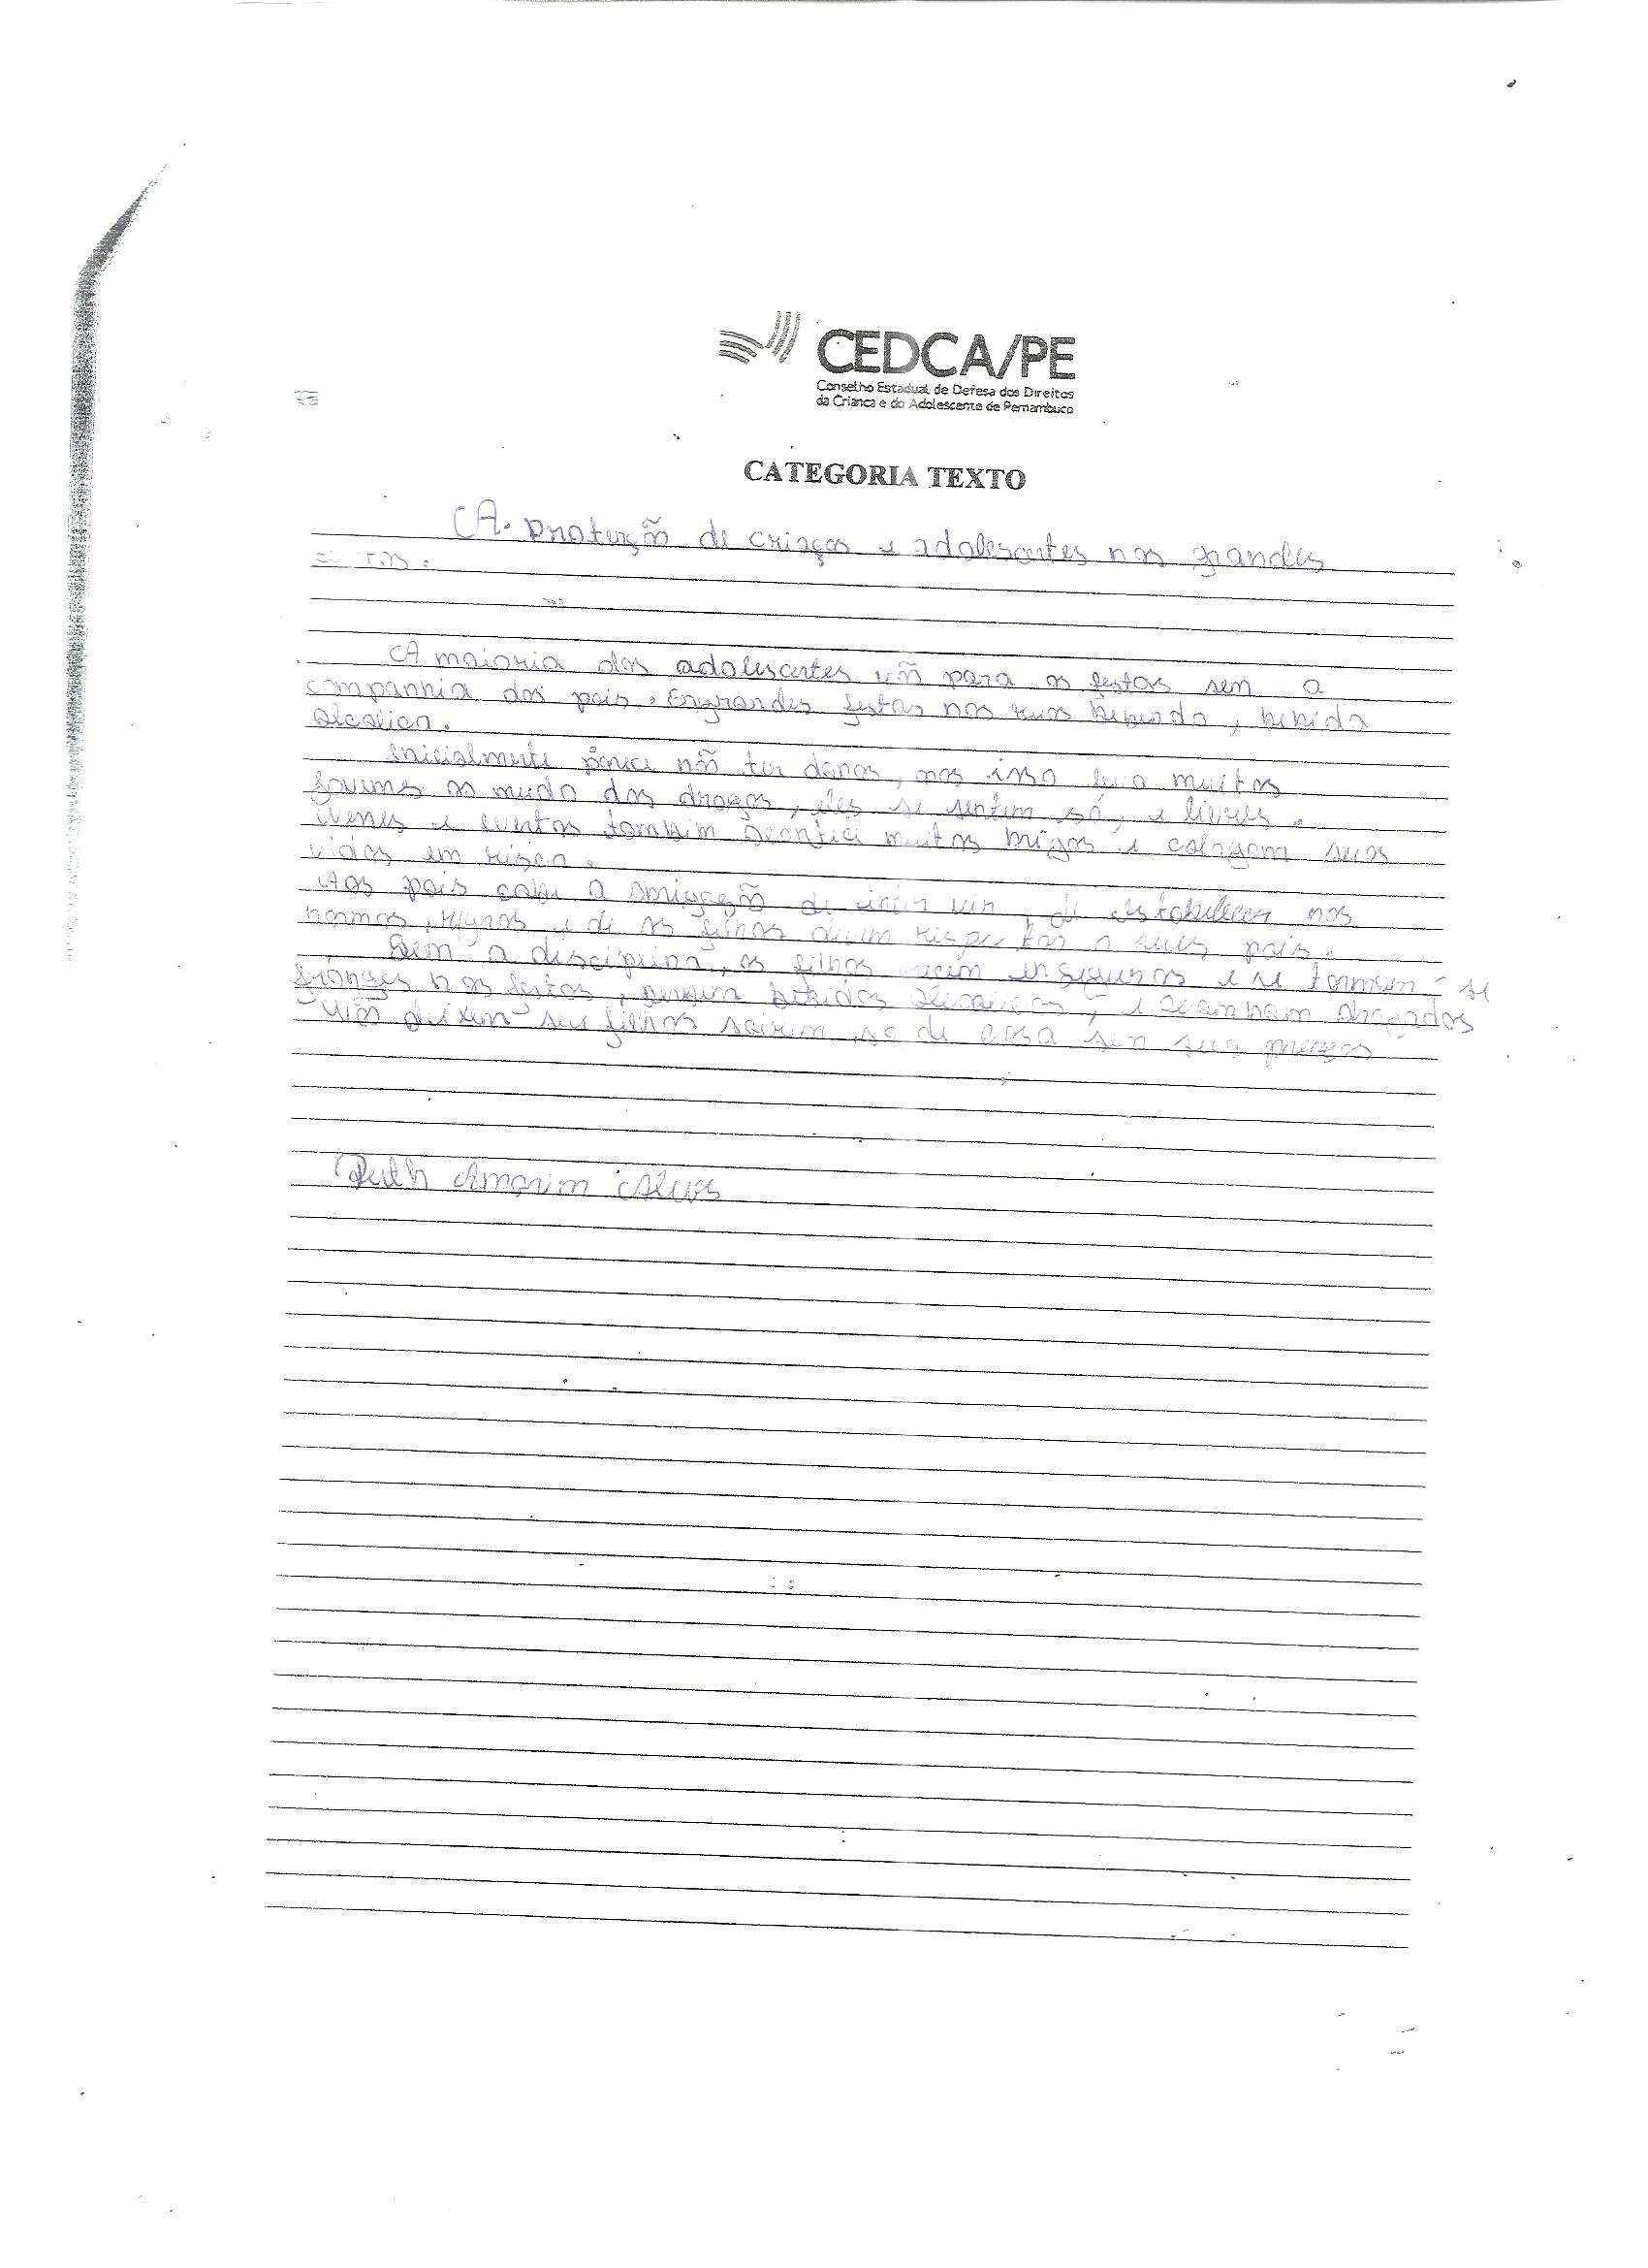 CEDCA/PE
Conselho Estadual de Defesa dos Direitos
da Criança e do Adolescente de Pernambuco
CATEGORIA TEXTO
A. proteção de criaças e adolescentes nas grandes
A maioria dos adolescentes vão para as festas sem a
companhia dos pais. Engrandes festas nas ruas bebendo, bebida
alcolica.
Inicialmente parece não ter danos, mas isso leva muitos
jovems ao mudo das drogas, eles se sentem só, e livres.
e eventos tambem acontece muitas brigas e colagem suas
vidas em risco.
Aos pais cabe a obrigação de , de estabelecer nos
normas, regras e de os filhos devem respeitar a seus pais.
Sem a disciplina, os filhos inseguros e se tornam-se
nas festas, bebidas alecolicas, e drogados
Não deixem seu filhos sairem so de casa sem sua
Ruth Amorim Alves